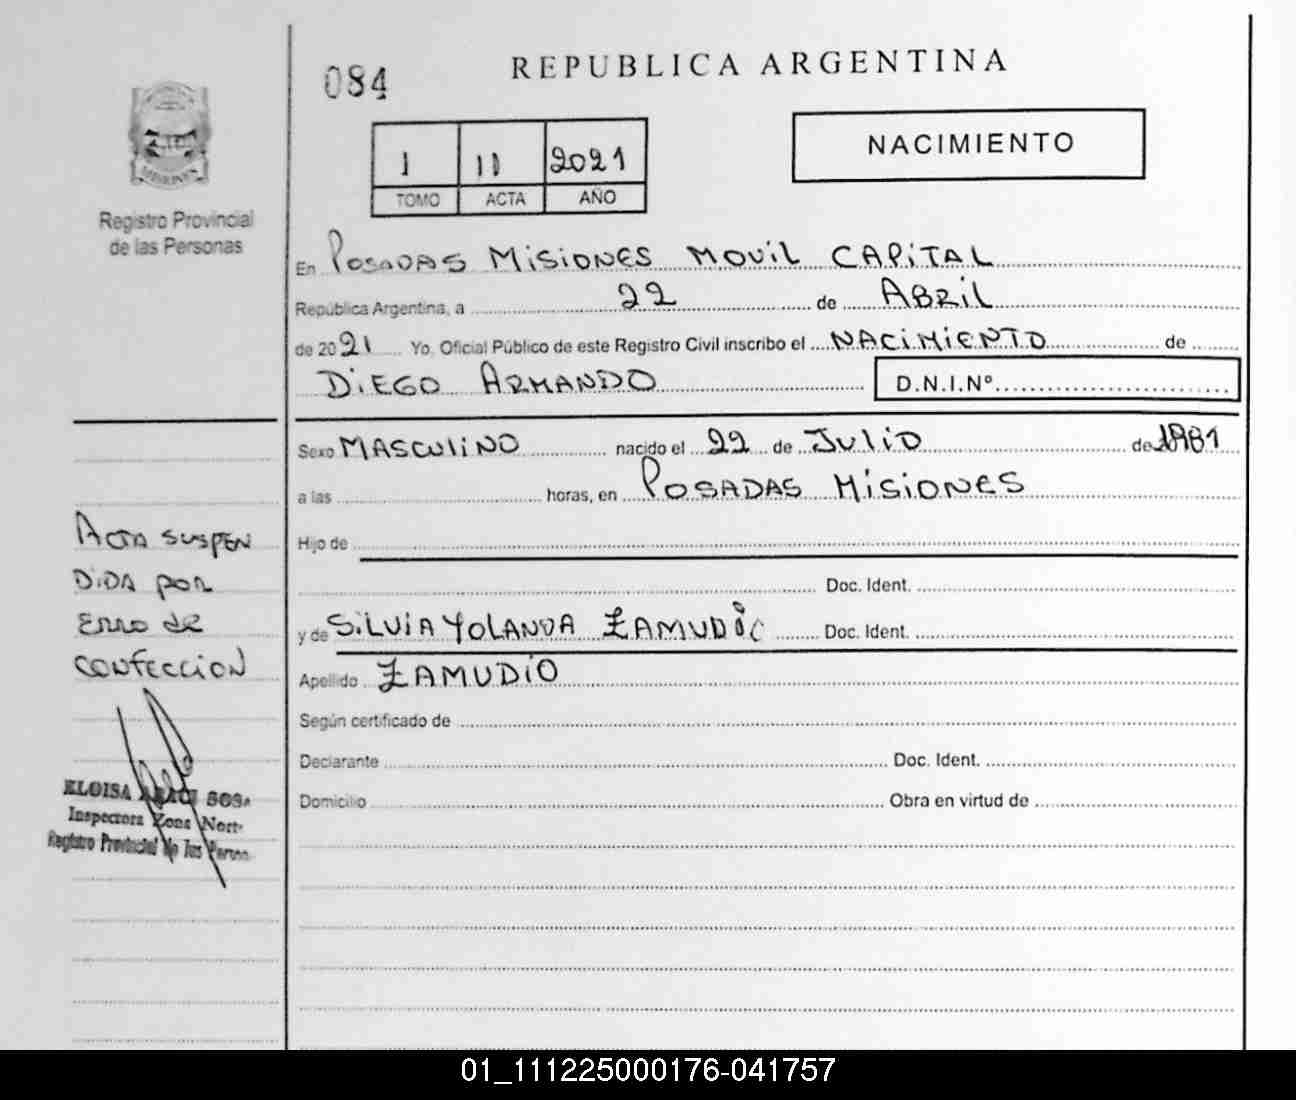 084
REPUBLICA ARGENTINA
NACIMIENTO
1 11 2021
TOMO ACTA AÑO
MISIONES
Registro Provincial
de las Personas
En POSADAS MISIONES MOVIL CAPITAL
República Argentina, a 22 de ABRIL
de 2021 Yo, Oficial Público de este Registro Civil inscribo el NACIMIENTO de
DIEGO ARMANDO D.N.I.Nº
Sexo MASCULINO nacido el 22 de JULIO de 1981
a las horas, en POSADAS MISIONES
Hijo de
Doc. Ident.
y de SILVIA YOLANDA ZAMUDIO Doc. Ident.
Apellido ZAMUDIO
Según certificado de
Declarante Doc. Ident.
Domicilio Obra en virtud de
ACTA SUSPEN
DIDA POR
ERRO DE
CONFECCION
ELOISA SOSA
Inspectora Zona Norte
Registro Provincial de las
01_111225000176-041757